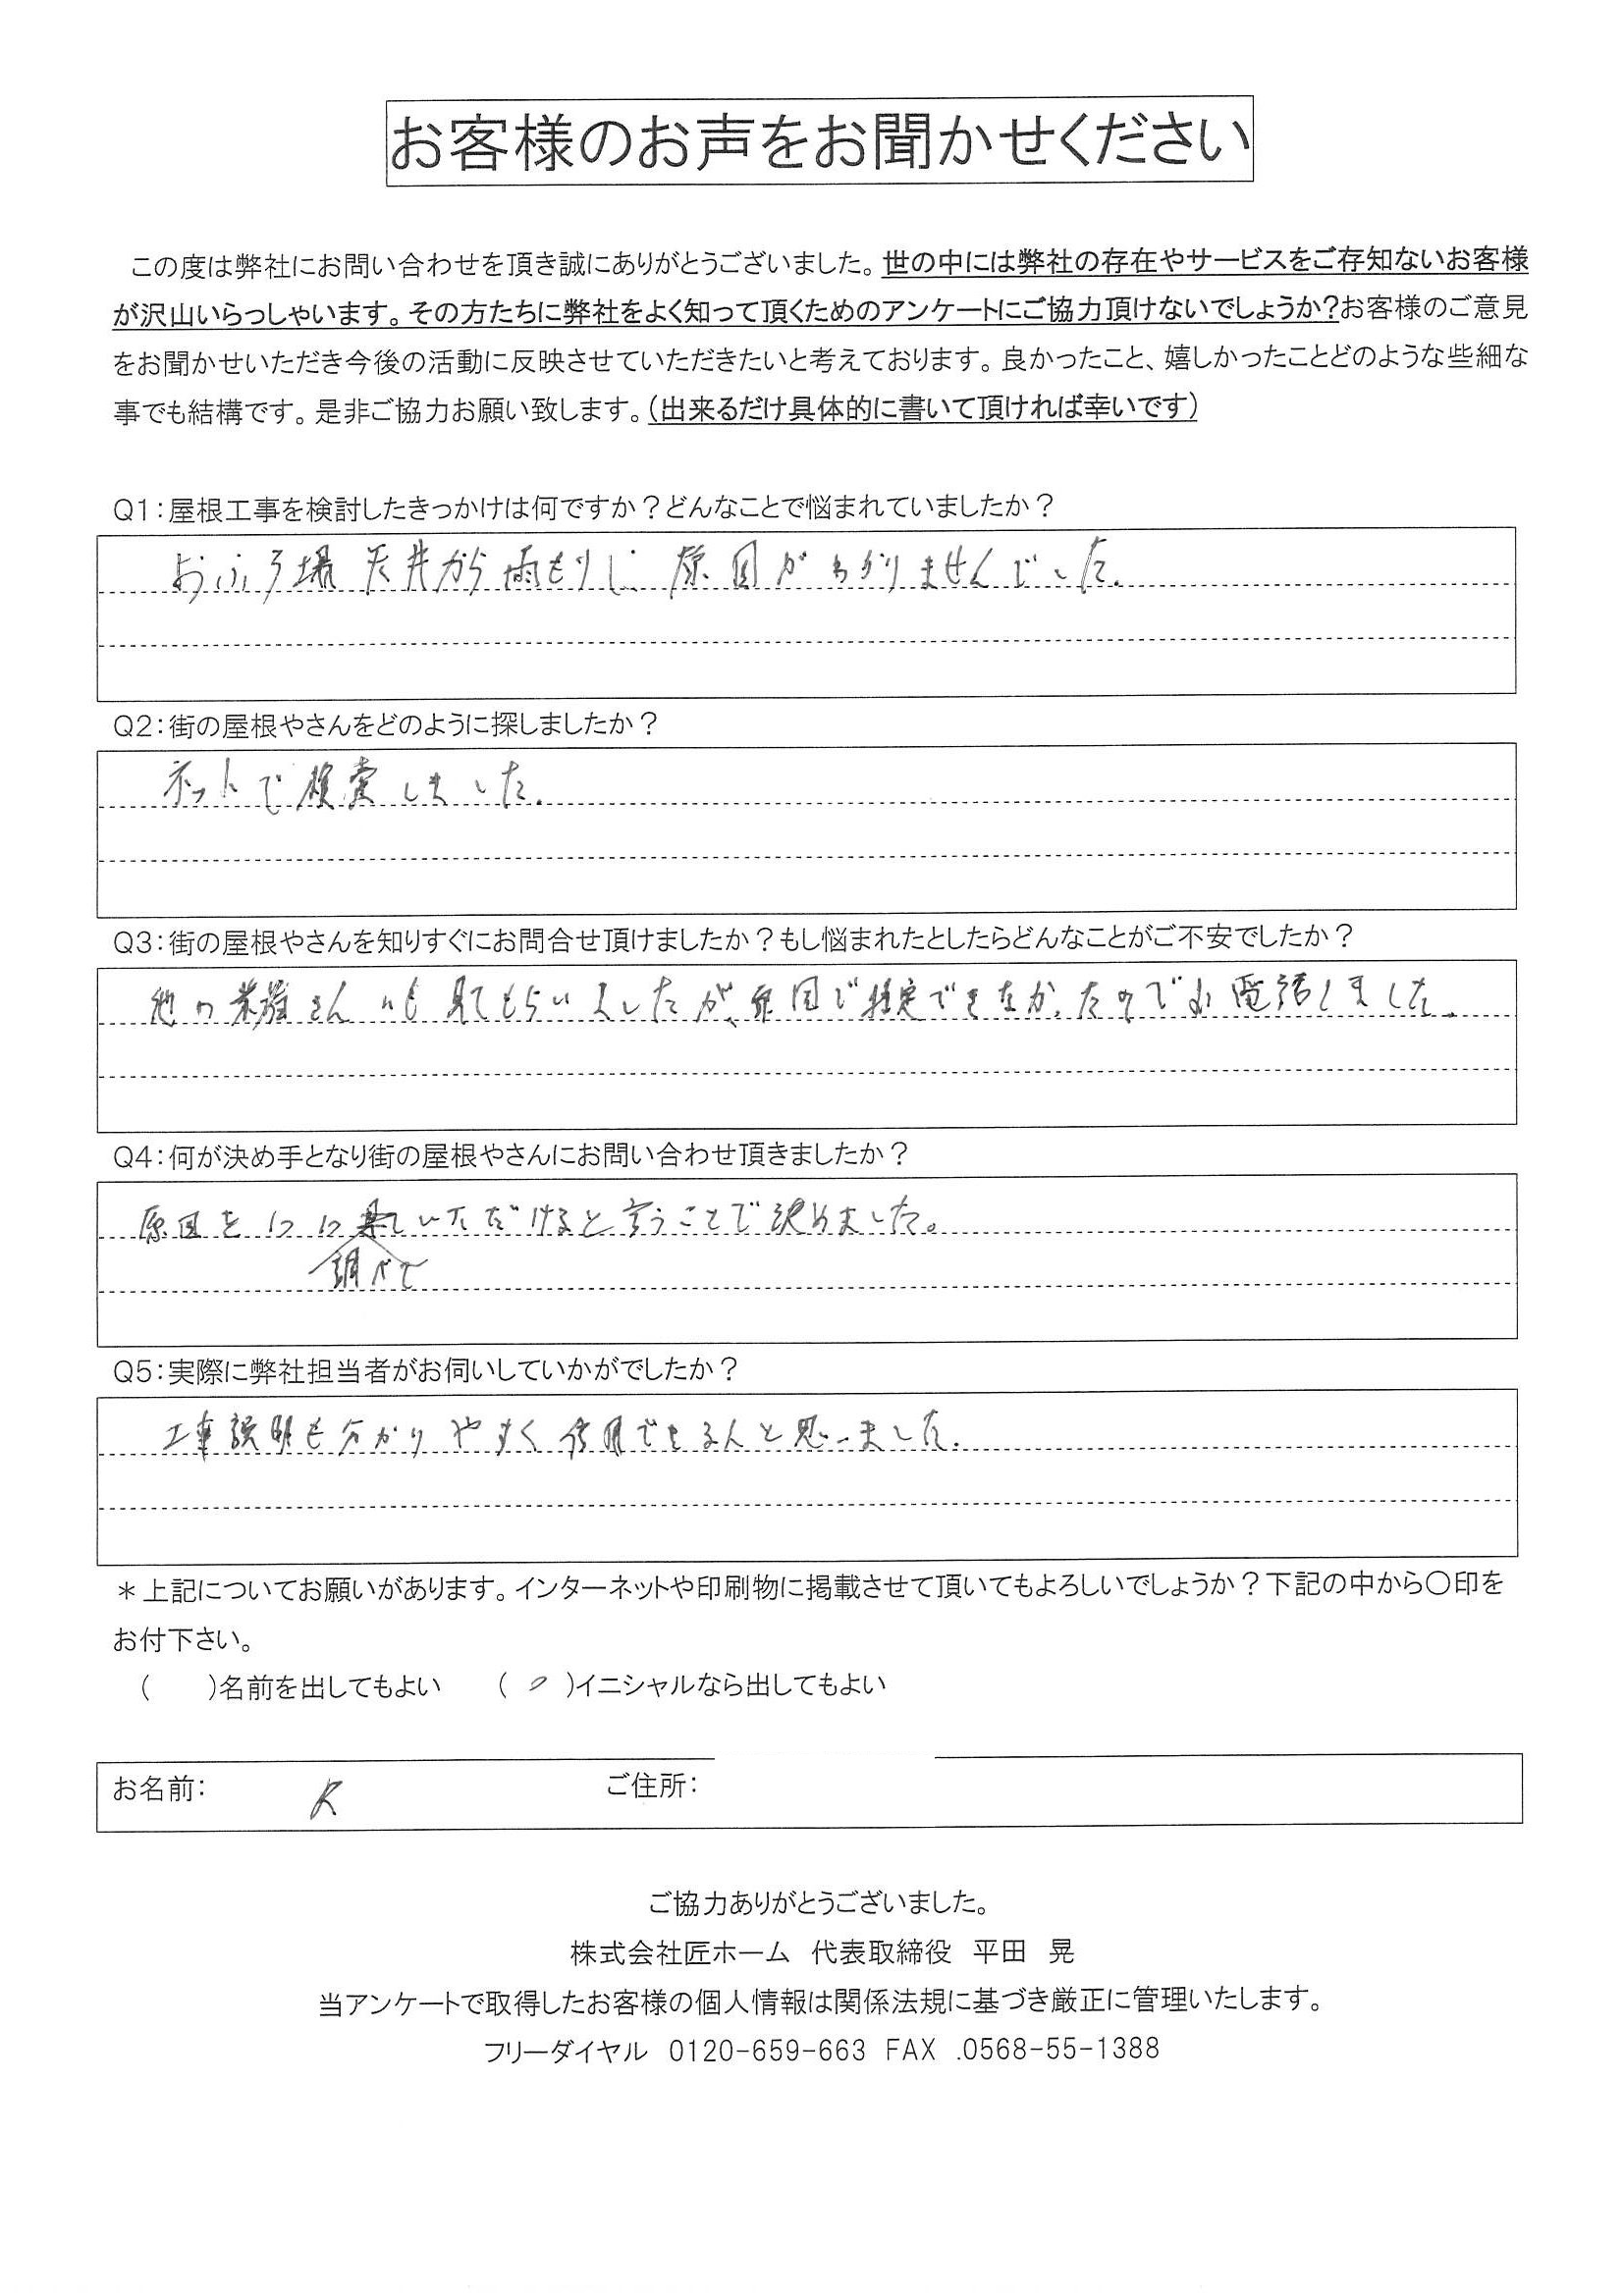 お客様のお声をお聞かせください
この度は弊社にお問い合わせを頂き誠にありがとうございました。世の中には弊社の存在やサービスをご存知ないお客様
が沢山いらっしゃいます。その方たちに弊社をよく知って頂くためのアンケートにご協力頂けないでしょうか?お客様のご意見
をお聞かせいただき今後の活動に反映させていただきたいと考えております。良かったこと、嬉しかったことどのような些細な
事でも結構です。是非ご協力お願い致します。(出来るだけ具体的に書いて頂ければ幸いです)
Q1:屋根工事を検討したきっかけは何ですか?どんなことで悩まれていましたか?
おふろ場天井から雨もりし、原因がわかりませんでした。
Q2:街の屋根やさんをどのように探しましたか?
ネットで検索しました。
Q3:街の屋根やさんを知りすぐにお問合せ頂けましたか?もし悩まれたとしたらどんなことがご不安でしたか?
他の業者さんにも見てもらいましたが、原因で推定できなかったのでお電話しました。
Q4:何が決め手となり街の屋根やさんにお問い合わせ頂きましたか?
原因を いただけると言うことで決めました。
調べて
Q5:実際に弊社担当者がお伺いしていかがでしたか?
工事説明も分かりやすく信用できる人と思いました。
*上記についてお願いがあります。インターネットや印刷物に掲載させて頂いてもよろしいでしょうか?下記の中から〇印を
お付下さい。
( )名前を出してもよい (〇)イニシャルなら出してもよい
お名前: K ご住所:
ご協力ありがとうございました。
株式会社匠ホーム 代表取締役 平田 晃
当アンケートで取得したお客様の個人情報は関係法規に基づき厳正に管理いたします。
フリーダイヤル 0120-659-663 FAX .0568-55-1388